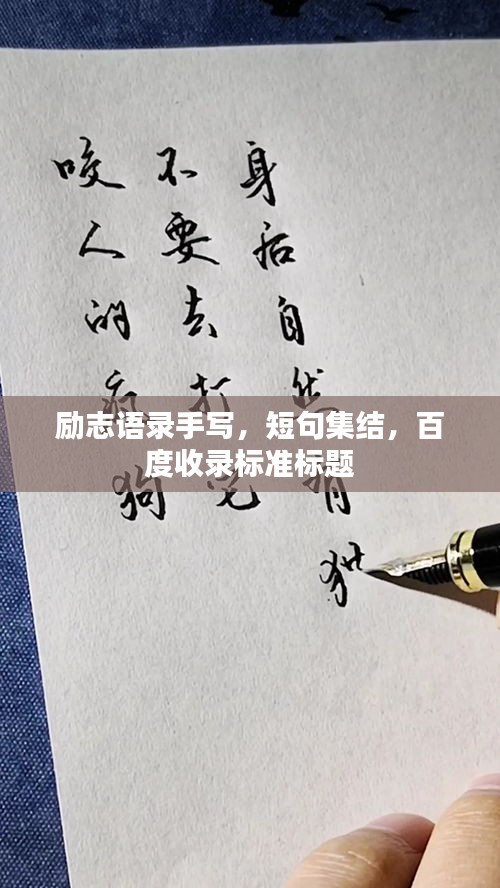 咬人的疯狗
不要去打它
身后自然有
励志语录手写，短句集结，百
度收录标准标题